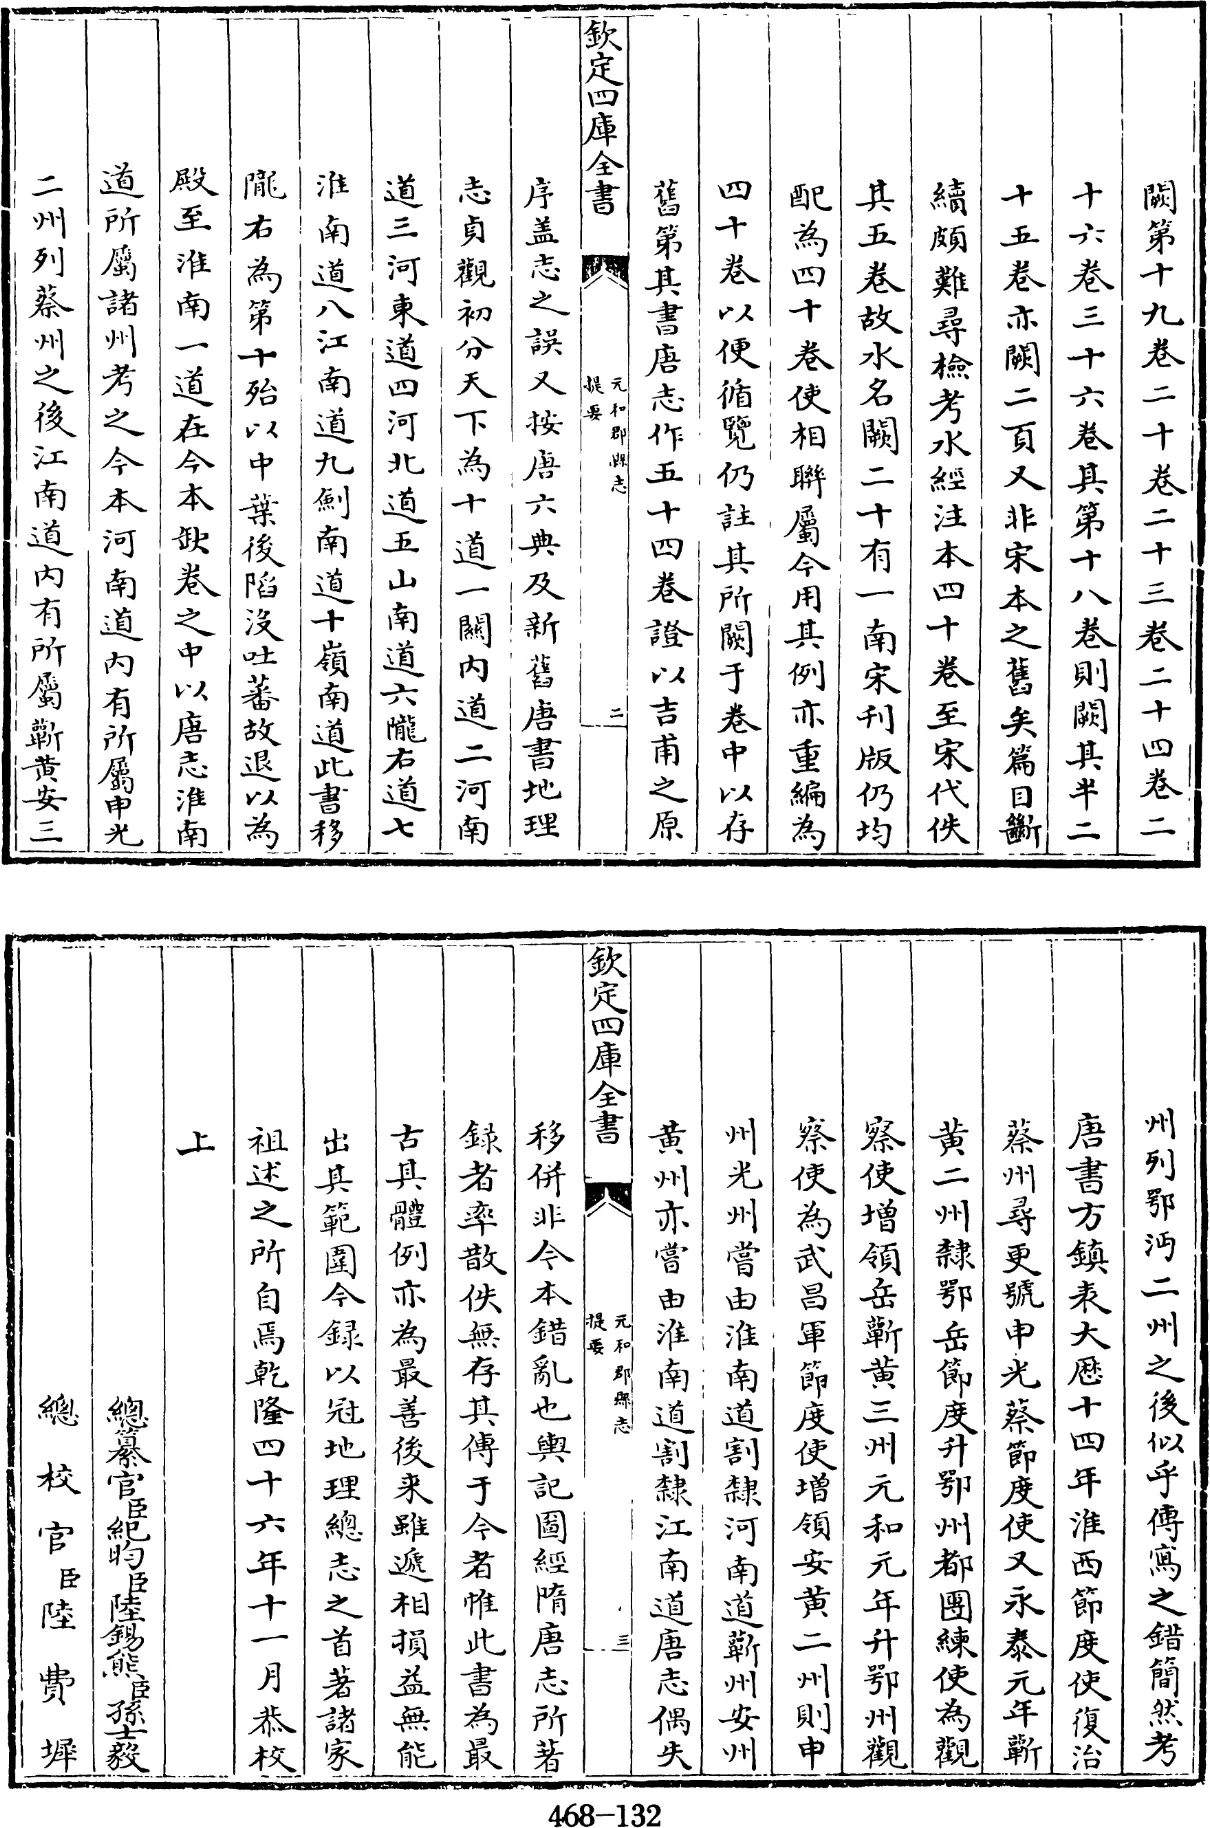 闕第十九卷二十卷二十三卷二十四卷二
十六卷三十六卷其第十八卷則闕其半二
十五卷亦闕二頁又非宋本之舊矣篇目斷
續頗難尋檢考水經注本四十卷至宋代佚
其五卷故水名闕二十有一南宋刋版仍均
配為四十卷使相聯屬今用其例亦重編為
四十卷以便循覽仍註其所闕于卷中以存
舊第其書唐志作五十四卷證以吉甫之原
欽定四庫全書
元和郡縣志
提要
二
序盖志之誤又按唐六典及新舊唐書地理
志貞觀初分天下為十道一關内道二河南
道三河東道四河北道五山南道六隴右道七
淮南道八江南道九劍南道十嶺南道此書移
隴右為第十殆以中葉後陷沒吐蕃故退以為
殿至淮南一道在今本缺卷之中以唐志淮南
道所屬諸州考之今本河南道内有所屬申光
二州列蔡州之後江南道内有所屬蘄黄安三
州列鄂沔二州之後似乎傳寫之錯簡然考
唐書方鎮表大厯十四年淮西節度使復治
蔡州尋更號申光蔡節度使又永泰元年蘄
黄二州隸鄂岳節度升鄂州都團練使為觀
察使增領岳蘄黄三州元和元年升鄂州觀
察使為武昌軍節度使增領安黄二州則申
州光州嘗由淮南道割隸河南道蘄州安州
黄州亦嘗由淮南道割隸江南道唐志偶失
欽定四庫全書
元和郡縣志
提要
三
移併非今本錯亂也輿記圖經隋唐志所著
録者率散佚無存其傳于今者惟此書為最
古其體例亦為最善後来雖遞相損益無能
出其範圍今録以冠地理總志之首著諸家
祖述之所自焉乾隆四十六年十一月恭校
上
總纂官臣紀昀臣陸錫熊臣孫士毅
總校官臣陸費墀
468-132